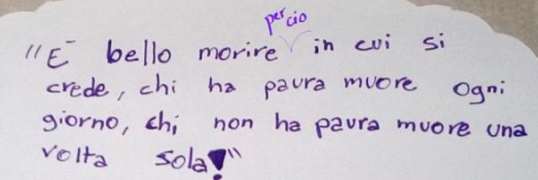 "E' bello morire per ciò in cui si
crede, chi ha paura muore ogni
giorno, chi non ha paura muore una
volta sola!"